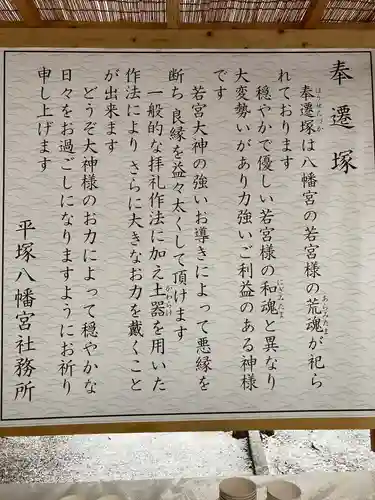 奉遷塚
奉遷塚は八幡宮の若宮様の荒魂が祀ら
れております
穏やかで優しい若宮様の和魂と異なり
大変勢いがあり力強いご利益のある神様
です
若宮大神の強いお導きによって悪縁を
断ち 良縁を益々太くして頂けます
一般的な拝礼作法に加え土器を用いた
作法により さらに大きなお力を戴くこと
が出来ます
どうぞ大神様のお力によって穏やかな
日々をお過ごしになりますようにお祈り
申し上げます
平塚八幡宮社務所